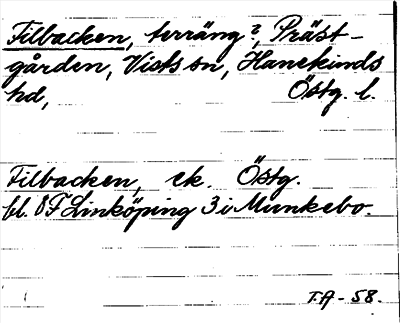 Filbacken, terräng?, Präst-
gården, Vists sn, Hanekinds
hd, Östg. l.
Filbacken, ek. Östg.
bl. 8 F Linköping 3 i Munkebo.
T.A - 58.